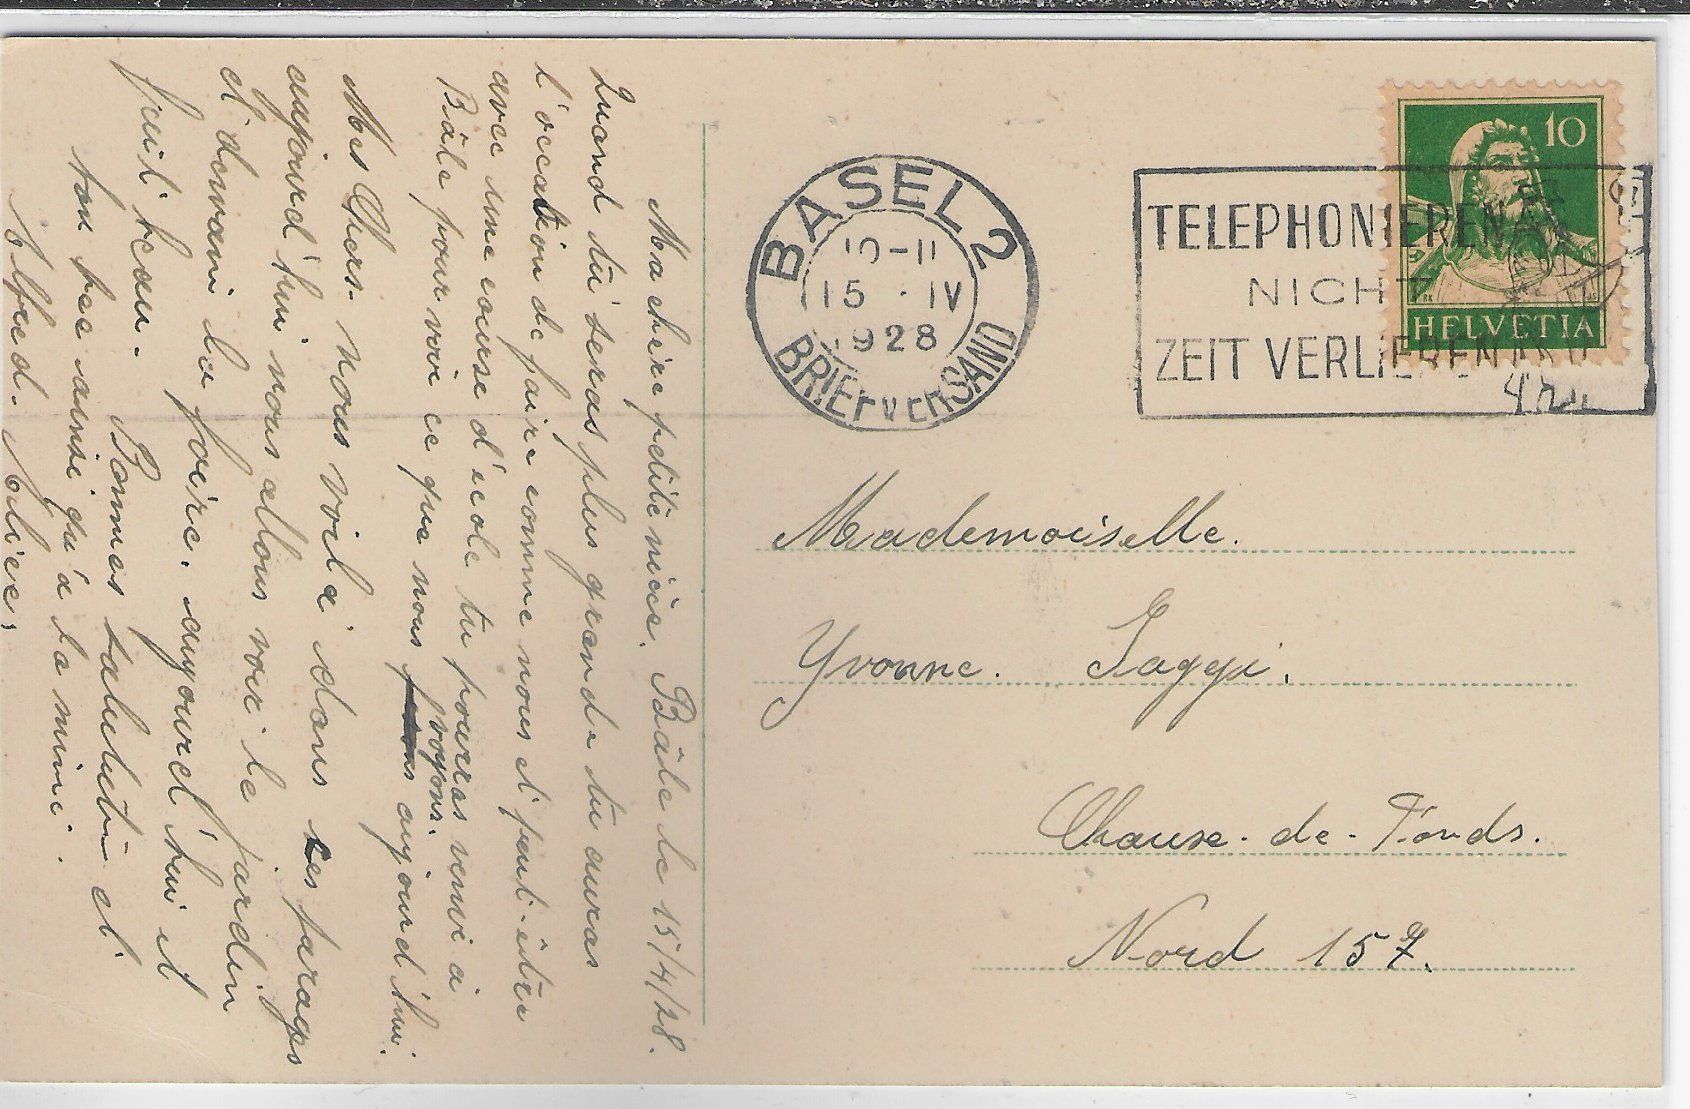 Ma chère petite nièce. Bâle le 15/4/28.
Quand tu seras plus grande tu auras
l'occation de faire comme nous et peut-être
avec une course d'école tu pourras venir à
Bâle pour voir ce que nous voyons. aujourd'hui.
Mes Chers. Nous voilà dans les parages
aujourd'hui nous allons voir le jardin
et demain la foire. aujourd'hui il
fait beau. Bonnes salutation et.
bon bec ainsi qu'à la mimi.
Alfred. Alice.
BASEL 2
10-11
15 · IV
1928
BRIEFVERSAND
TELEPHONIEREN
NICHT
ZEIT VERLIEREN
10
HELVETIA
Mademoiselle.
Yvonne. Jaggi.
Chaux-de-Fonds.
Nord 157.